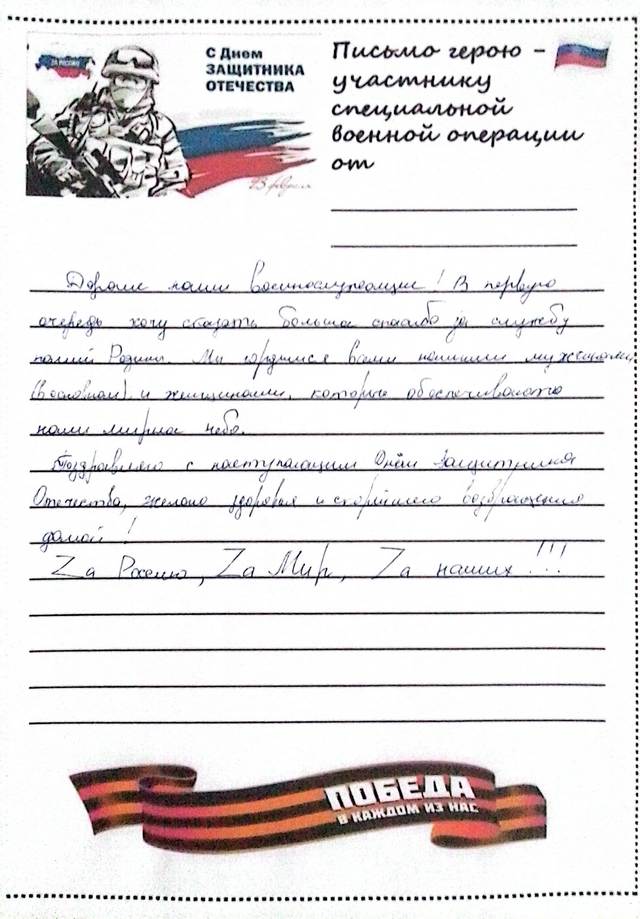 ZA РОССИЮ
С Днем
ЗАЩИТНИКА
ОТЕЧЕСТВА
23 февраля
Письмо герою –
участнику
специальной
военной операции
от
Дорогие наши военнослужащие! В первую
очередь хочу сказать больша спасибо за службу
наший Родини. Мы гордимся вами нашими мужчинами
и женщинами, которые обеспечивают
нам мирна небо.
Поздравляю с наступающим Днём Защитника
Отечества, желаю здоровья и скорейшего возвращения
домой!
Zа Россию, Zа Мир, Zа наших!!!
ПОБЕДА
В КАЖДОМ ИЗ НАС